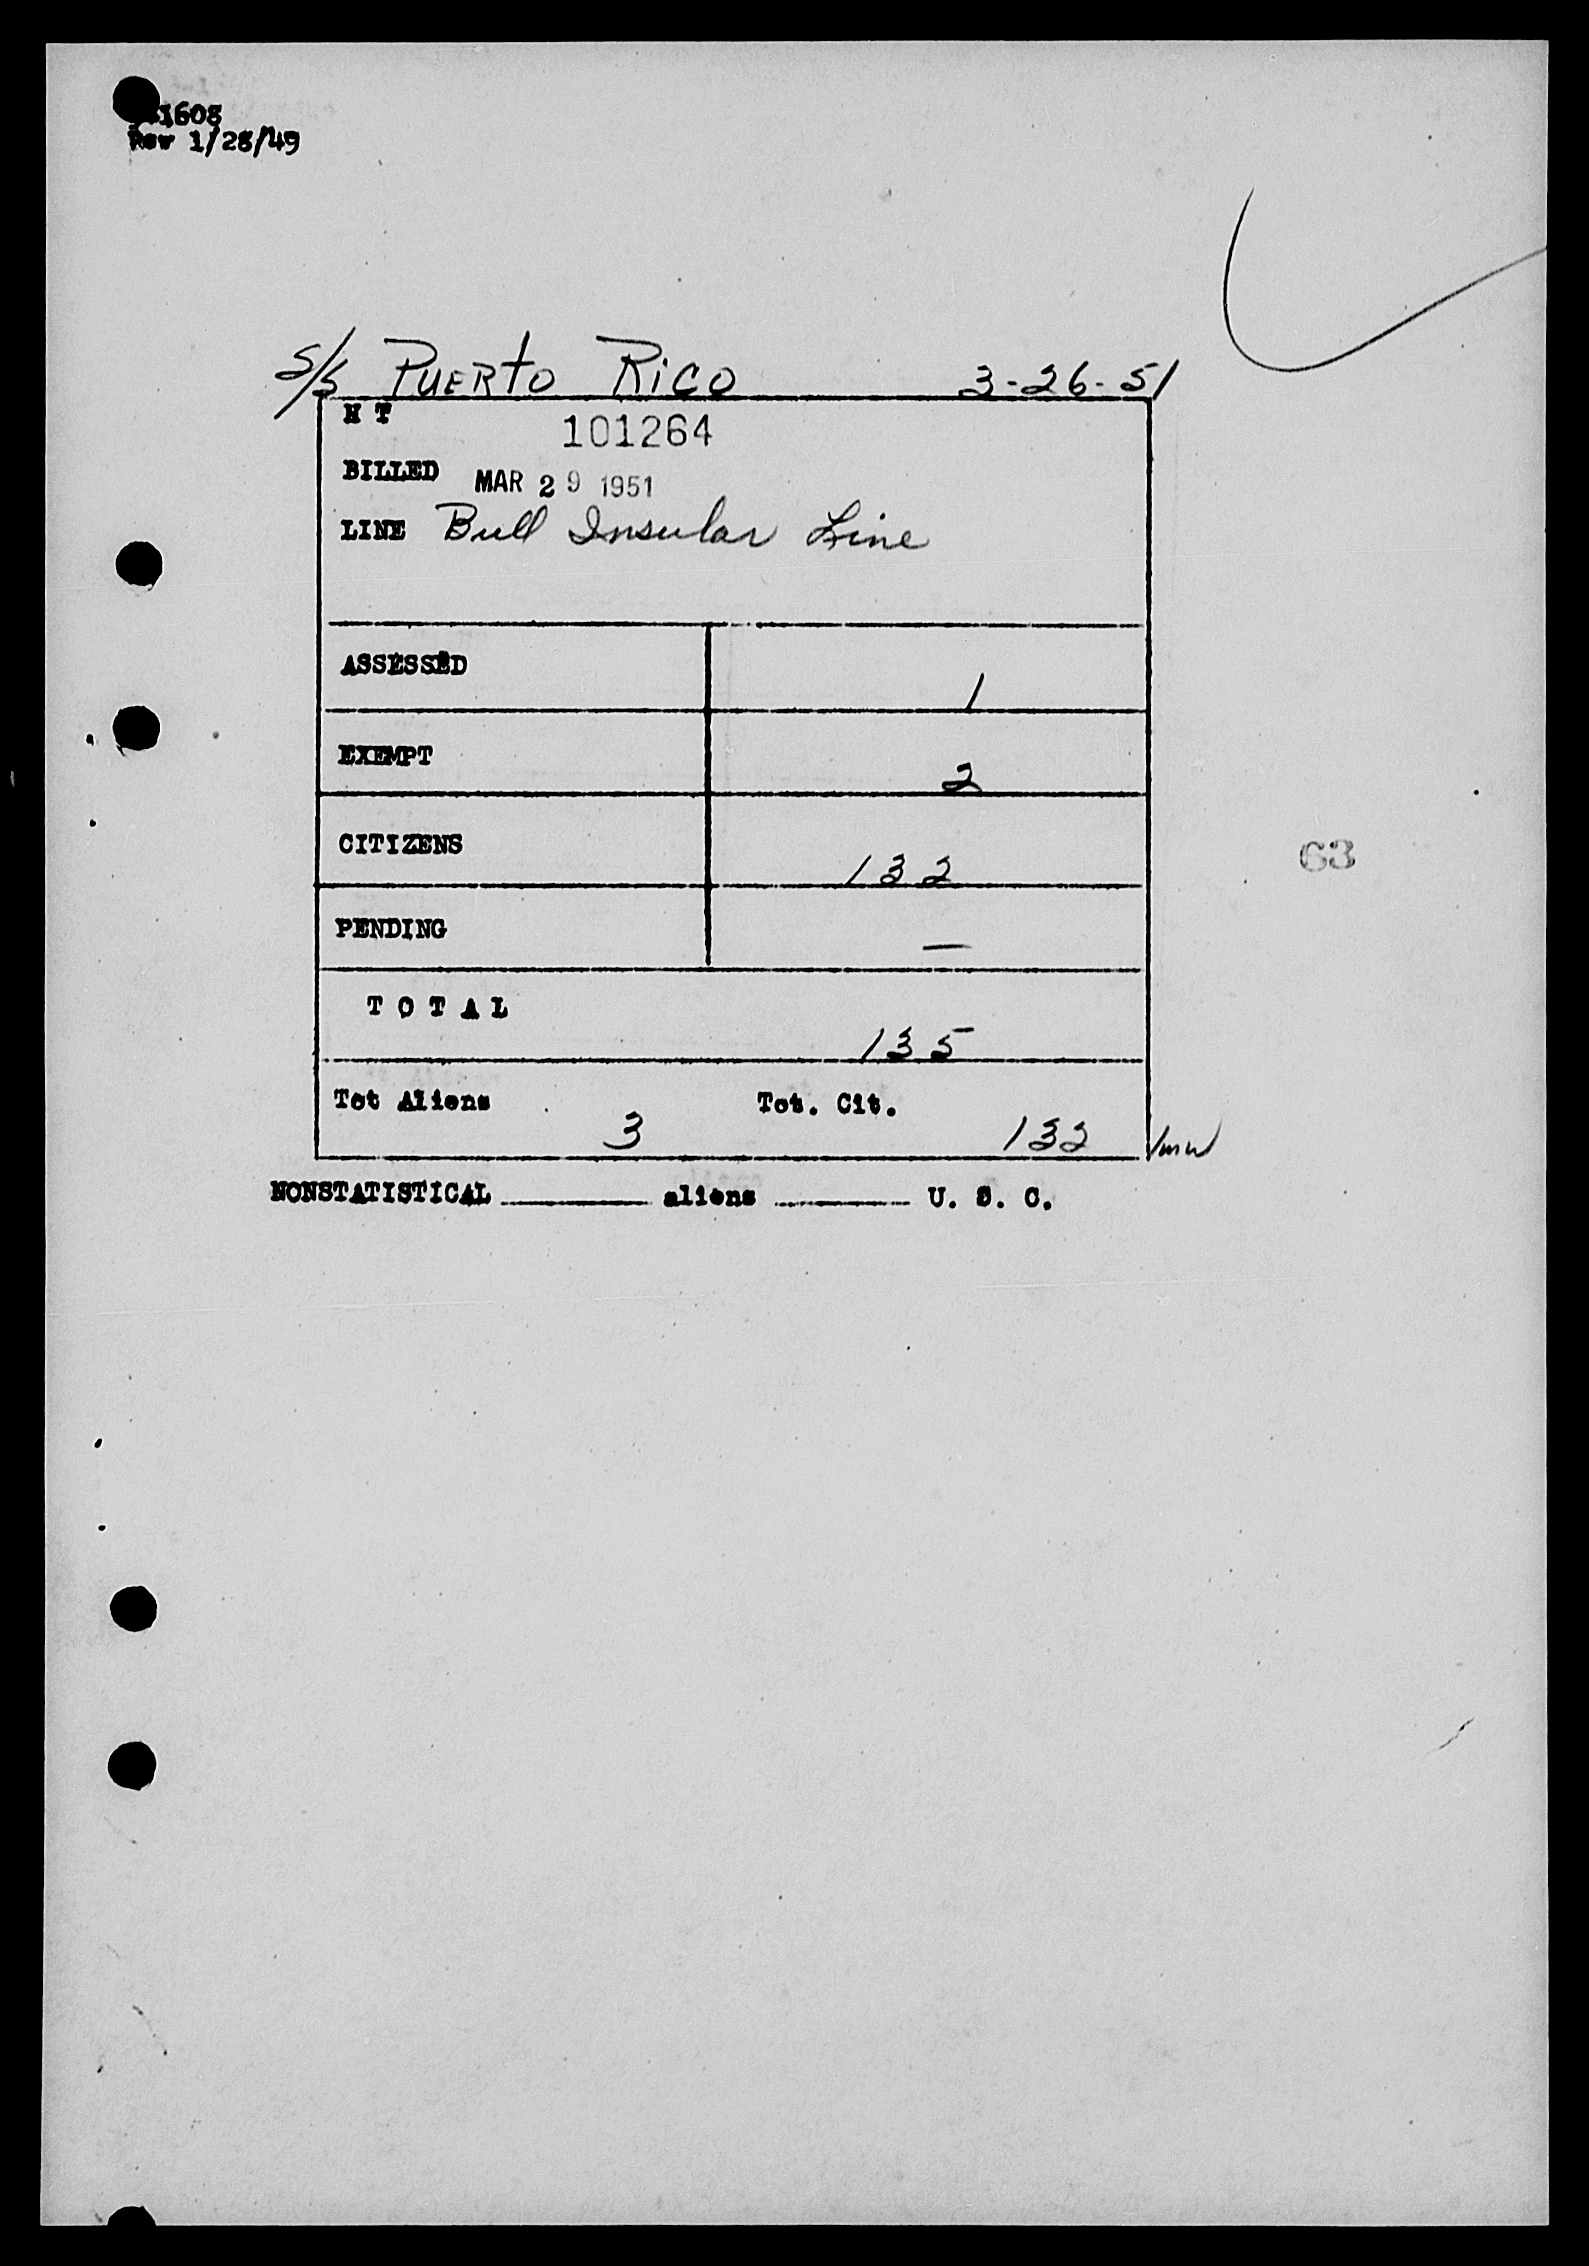 1608
Rev 1/28/49
S/S PUERTO RICO 3-26-51
H T 101264
BILLED MAR 29 1951
LINE Bull Insular Line
ASSESSED 1
EXEMPT 2
CITIZENS 132
63
PENDING —
T O T A L 135
Tot Aliens 3 Tot. Cit. 132
NONSTATISTICAL ______ aliens ______ U. S. C.